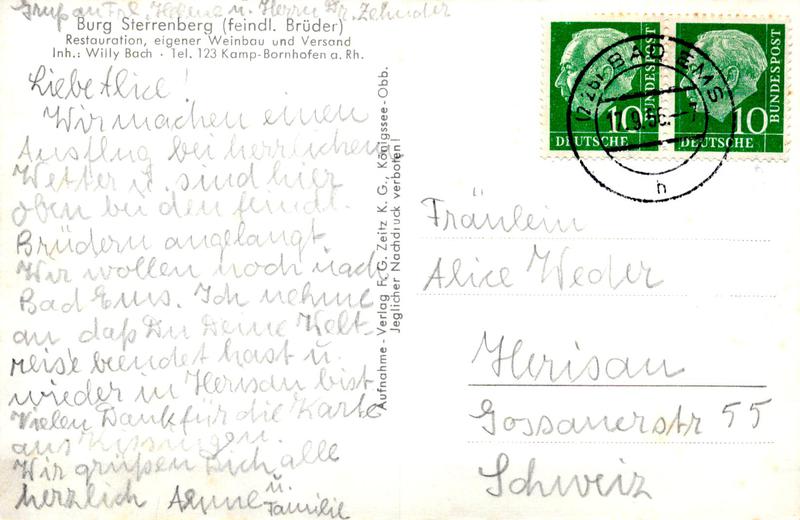 Gruß an Frl. Helene u. Herrn Dr. Zehnder
Burg Sterrenberg (feindl. Brüder)
Restauration, eigener Weinbau und Versand
Inh.: Willy Bach · Tel. 123 Kamp-Bornhofen a. Rh.
Liebe Alice!
Wir machen einen
Ausflug bei herrlichem
Wetter u. sind hier
oben bei den feindl.
Brüdern angelangt
Wir wollen noch nach
Bad Ems. Ich nehme
an daß Du Deine Welt-
reise beendet hast u.
wieder in Herisau bist
Vielen Dank für die Karte
aus Kissingen.
Wir grüßen Dich alle
herzlich Aenne u.
Familie
Aufnahme - Verlag F. G. Zeitz K. G., Königssee - Obb.
Jeglicher Nachdruck verboten!
10
DEUTSCHE
BUNDESPOST
10
DEUTSCHE
BUNDESPOST
BAD EMS
h
Fräulein
Alice Weder
Herisau
Gossauerstr 55
Schweiz